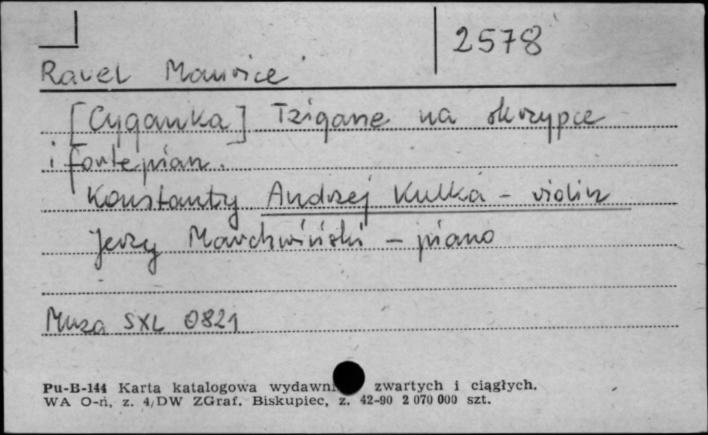 2578
Ravel Maurice
[Cyganka] Tzigane na skrzypce
i fortepian.
Konstanty Andrzej Kulka - violin
Jerzy Marchwiński - piano
Muza SXL 0821
Pu-B-144 Karta katalogowa wydawni zwartych i ciągłych.
WA O-ń, z. 4/DW ZGraf. Biskupiec, z. 42-90 2 070 000 szt.